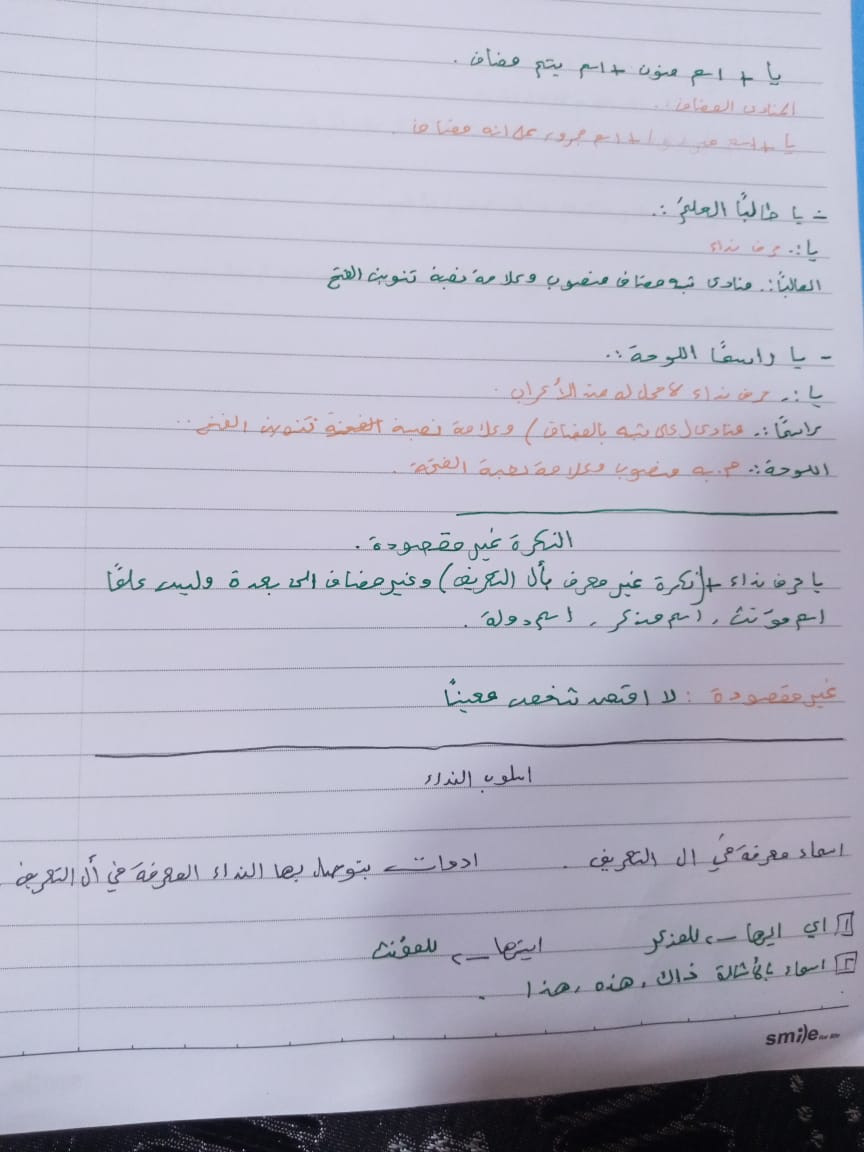 يا + اسم منون + اسم يتم مضاف .
المنادى المضاف .
يا + اسم + اسم مجرور على انه مضاف .
- يا طالبًا العلمُ :.
يا :. حرف نداء
الطالبًا :. منادى شبه مضاف منصوب وعلامة نصبة تنوين الفتح
- يا راسمًا اللوحة :.
يا :. حرف نداء لا محل له من الأعراب .
راسمًا :. منادى (على شبه بالمضاف) وعلامة نصبة تنوين الفتح ..
اللوحة :. م. به منصوب وعلامة نصبة الفتحة .
النكرة غير مقصودة .
يا حرف نداء + (نكرة غير معرف بأل التعريف) وغير مضاف الى بعدة وليست علمًا
اسم مؤنث ، اسم مذكر ، اسم دولة .
غير مقصودة : لا اقصد شخص معينًا
اسلوب النداء
اسماء معرفة في ال التعريف . ادوات يتوصل بها النداء المعرفة في أل التعريف .
1 اي ايها ← للمذكر ايتها ← للمؤنث
2 اسماء بالأشالة ذاك ، هذه ، هذا .
smile for life